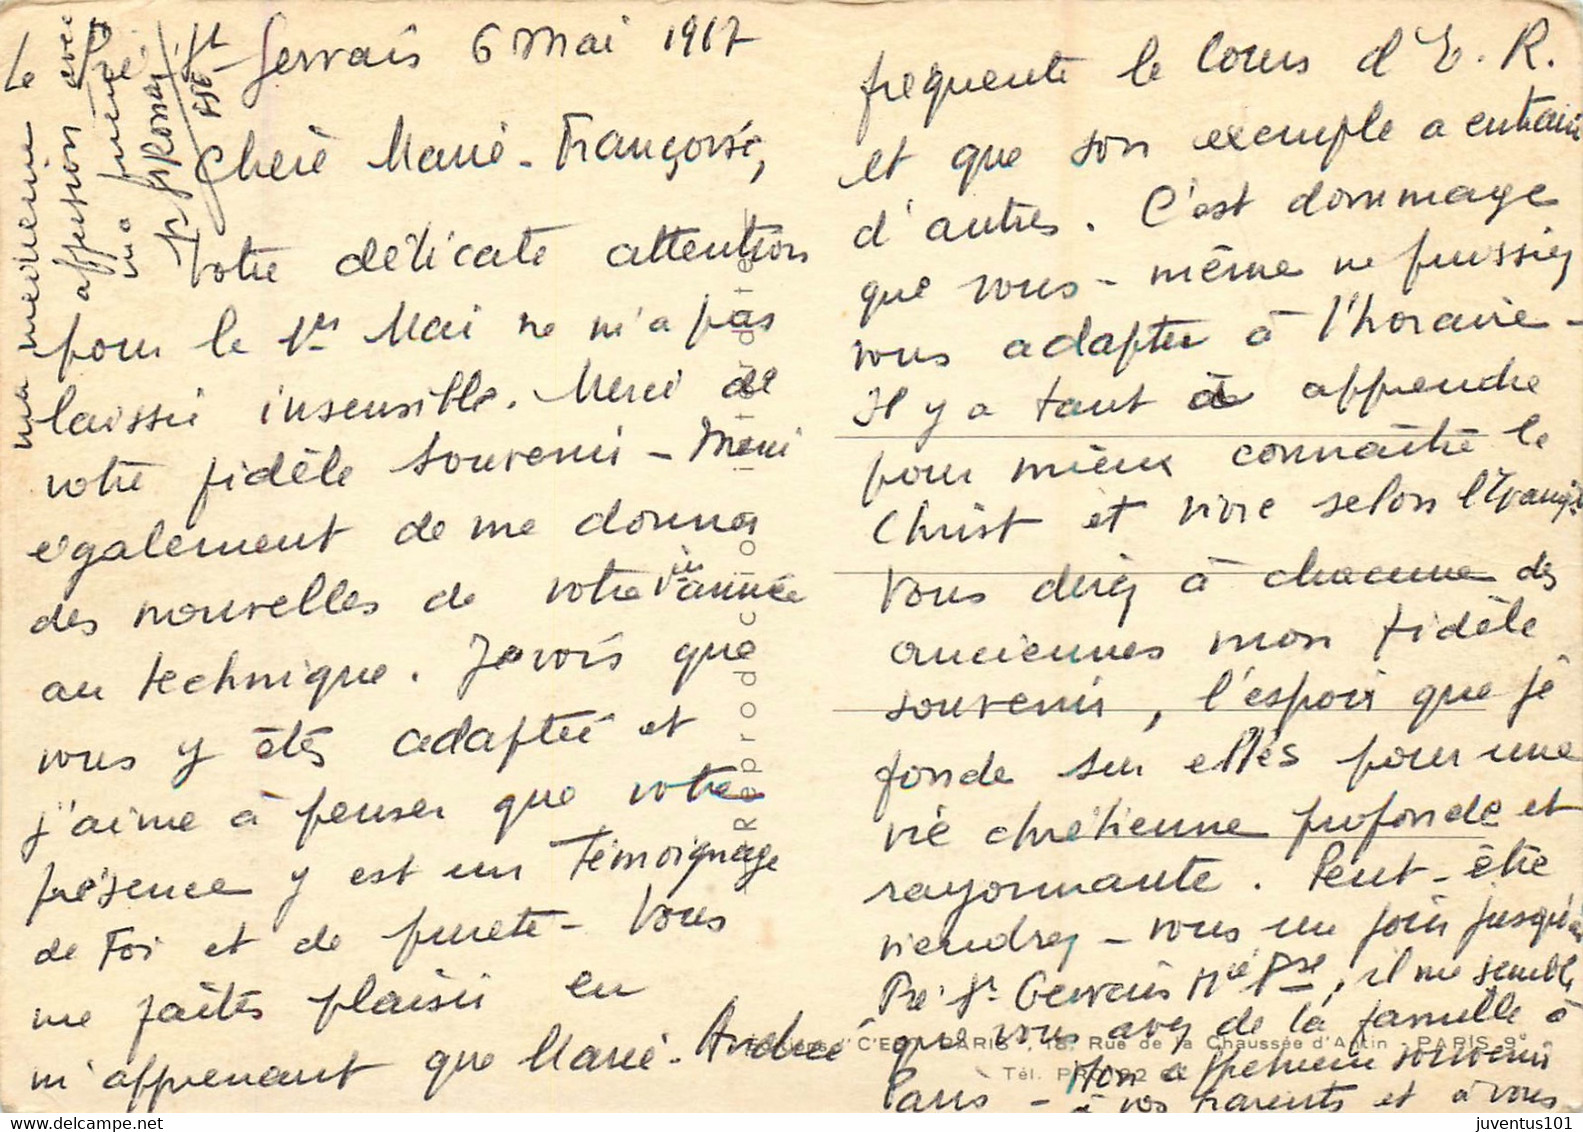 St Gervais 6 Mai 1967
Chère Marie-Françoise,
Votre délicate attention
pour le 1er Mai ne m'a pas
laissée insensible. Merci de
votre fidèle souvenir - Merci
également de me donner
des nouvelles de votre 1ère année
au technique. Je vois que
vous y êtes adaptée et
j'aime à penser que votre
présence y est un Témoignage
de Foi et de pureté - Vous
me faites plaisir en
m'apprenant que Marie-Andrée
fréquente le cours d'E. R.
et que son exemple a entrainé
d'autres. C'est dommage
que vous-même ne puissiez
vous adapter à l'horaire -
Il y a tant à apprendre
pour mieux connaître le
Christ et vivre selon l'Evangile
Vous direz à chacune des
anciennes mon fidèle
souvenir, l'espoir que je
fonde sur elles pour une
vie chrétienne profonde et
rayonnante. Peut-être
viendrez-vous un jour jusqu'au
Pré St Gervais Mie Fse, il me semble
que vous avez de la famille à
Paris - Mon affectueux souvenir
à vos parents et à vous
ma meilleure
affection avec
ma prière.
Le Pré
St
Reproduction interdite
Editions "C'EST PARIS", 15, Rue de la Chaussée d'Antin - PARIS 9e
Tél. PRO
juventus101